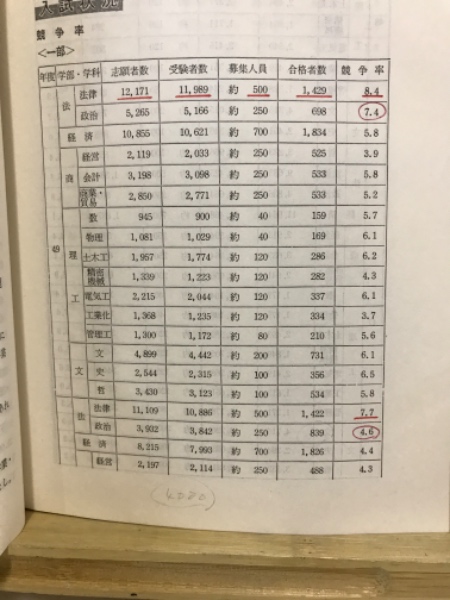 入試状況
競争率
<一部>
年度 学部・学科 志願者数 受験者数 募集人員 合格者数 競争率
49 法 法律 12,171 11,989 約 500 1,429 8.4
政治 5,265 5,166 約 250 698 7.4
経済 10,855 10,621 約 700 1,834 5.8
商 経営 2,119 2,033 約 250 525 3.9
会計 3,198 3,098 約 250 533 5.8
商業・貿易 2,850 2,771 約 250 533 5.2
理工 数 945 900 約 40 159 5.7
物理 1,081 1,029 約 40 169 6.1
土木工 1,957 1,774 約 120 286 6.2
精密機械 1,339 1,223 約 120 282 4.3
電気工 2,215 2,044 約 120 337 6.1
工業化 1,368 1,235 約 120 334 3.7
管理工 1,300 1,172 約 80 210 5.6
文 文 4,899 4,442 約 200 731 6.1
史 2,544 2,315 約 100 356 6.5
哲 3,430 3,123 約 100 534 5.8
法 法律 11,109 10,886 約 500 1,422 7.7
政治 3,932 3,842 約 250 839 4.6
経済 8,215 7,993 約 700 1,826 4.4
経営 2,197 2,114 約 250 488 4.3